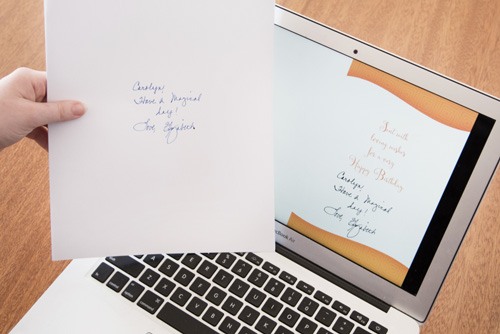 Carolyn,
Have a Magical
day!
Love, Elizabeth
Sent with
loving wishes
for a very
Happy Birthday
Carolyn,
Have a Magical
day!
Love, Elizabeth